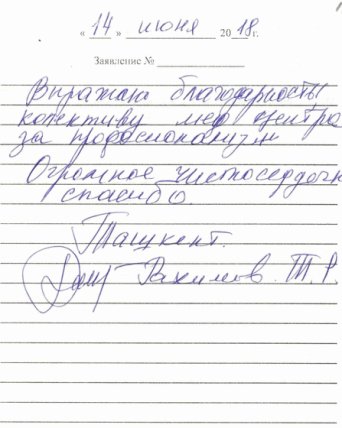 « 14 » июня 2018г.
Заявление №
Выражаю благодарность
колективу мед центра
за професионализм
Огромное чистосердечн
спасибо
Ташкент.
Рахимов. Т. Р.